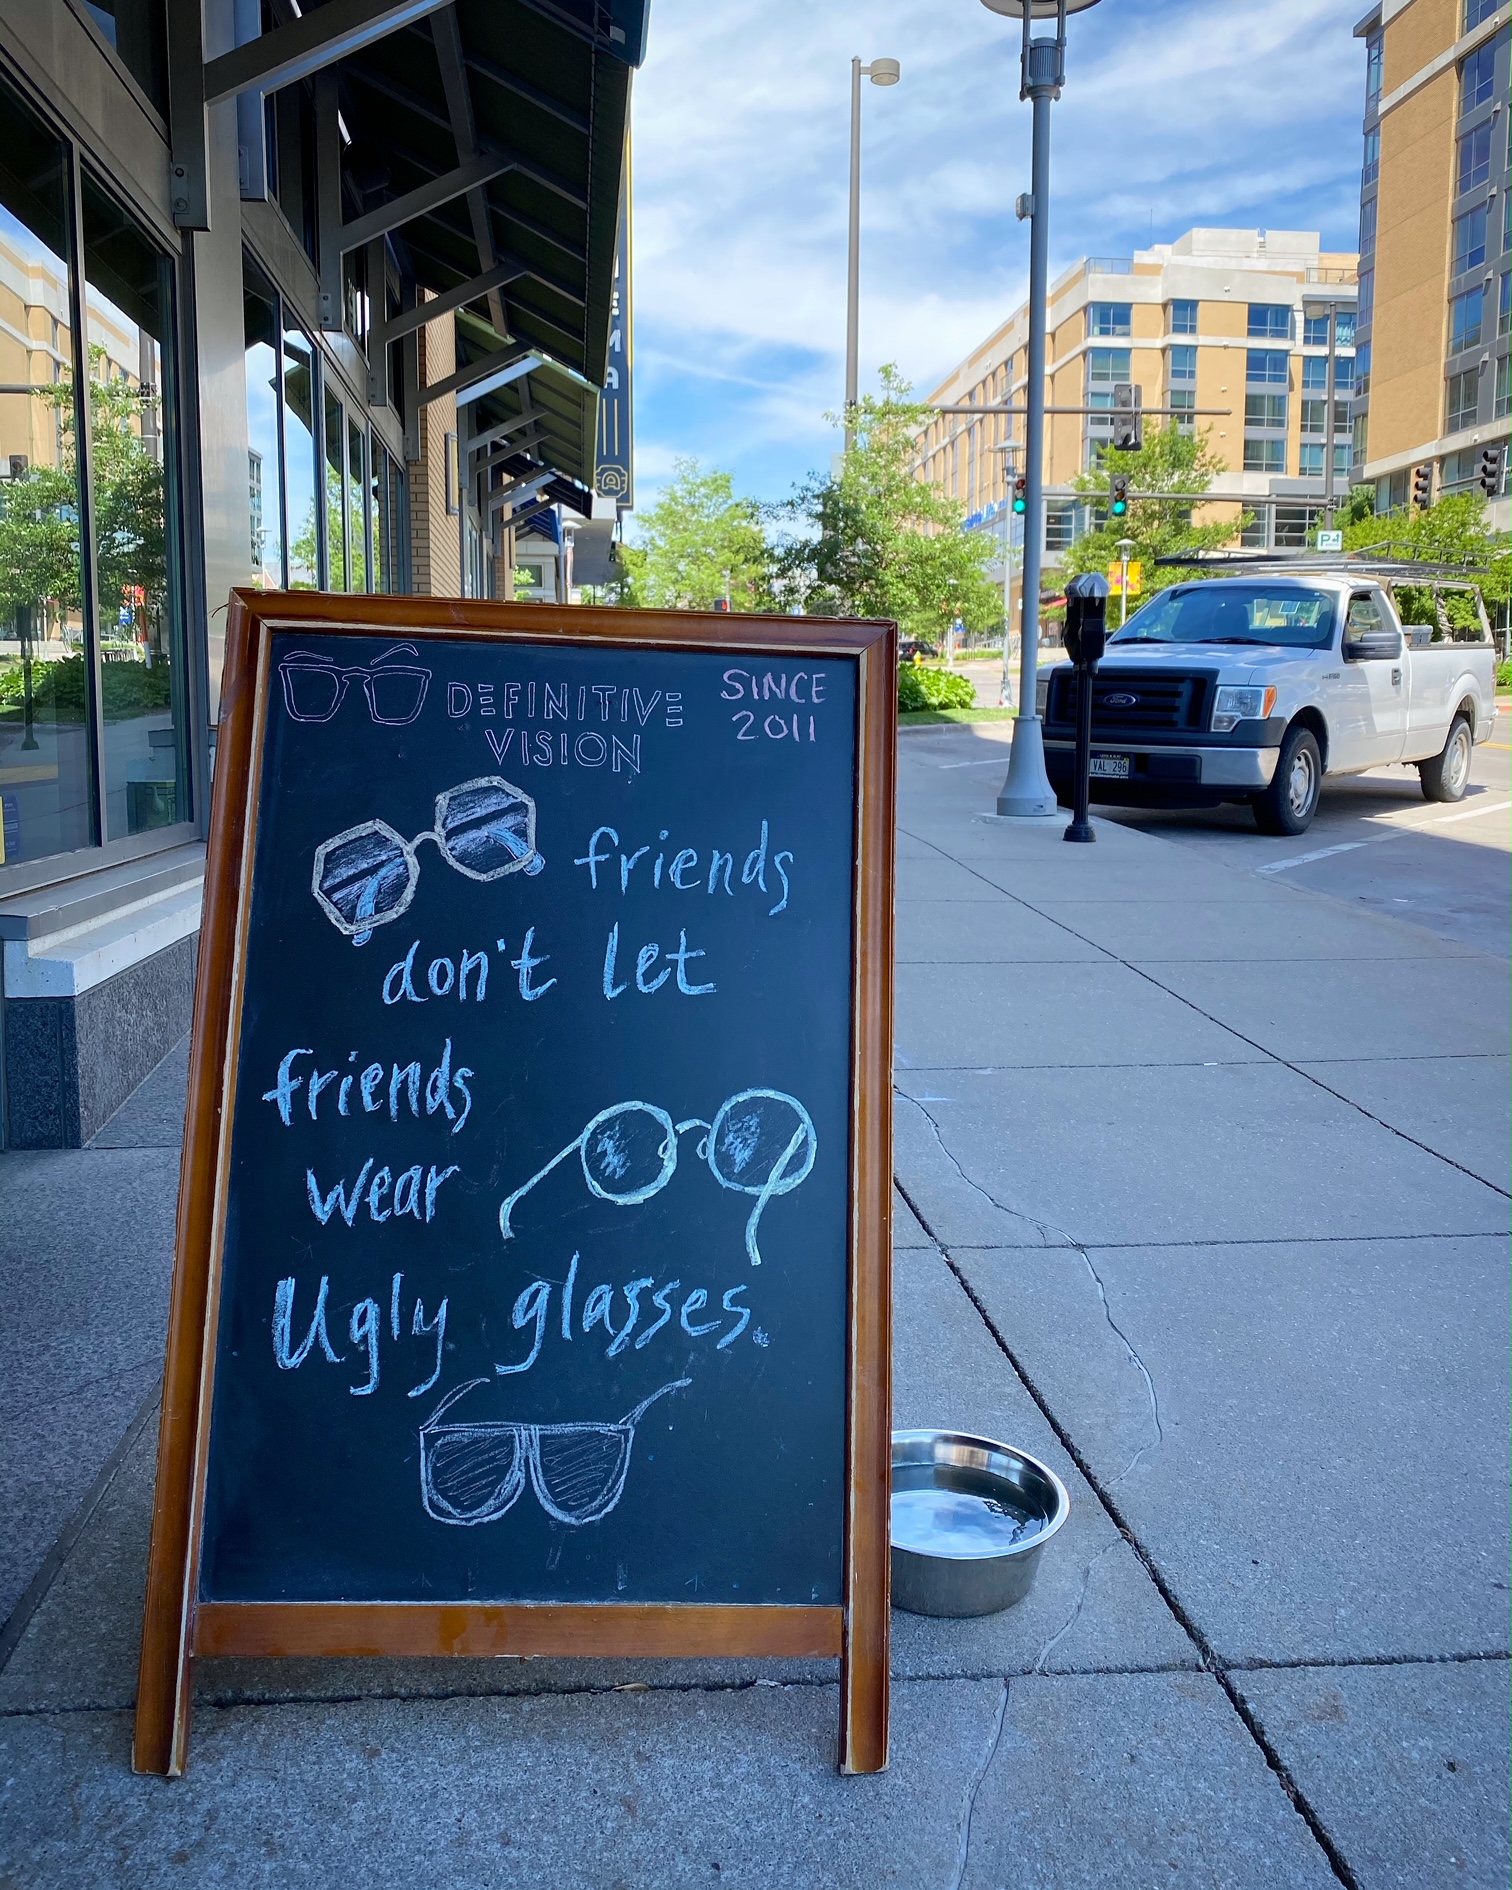 DEFINITIVE
VISION
SINCE
2011
friends
don't let
friends
wear
Ugly glasses.
EMA
Ford
VAL 296
P4